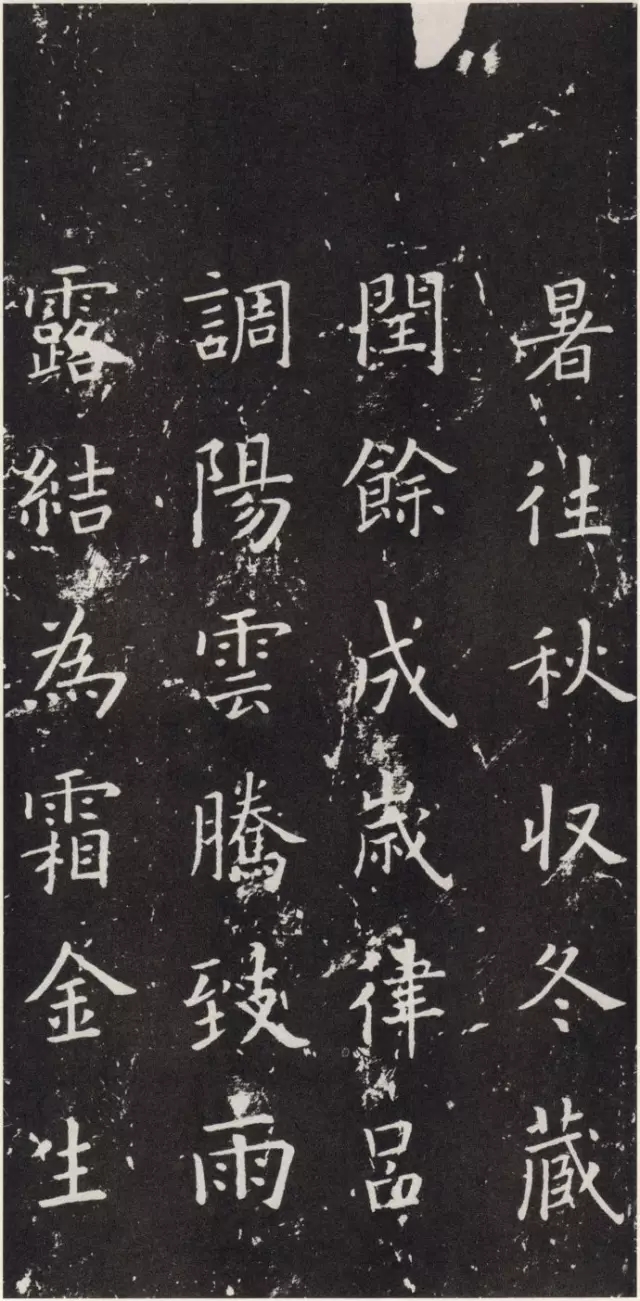 暑往秋収冬蔵
閏餘成歳律吕
調陽雲騰致雨
露結為霜金生